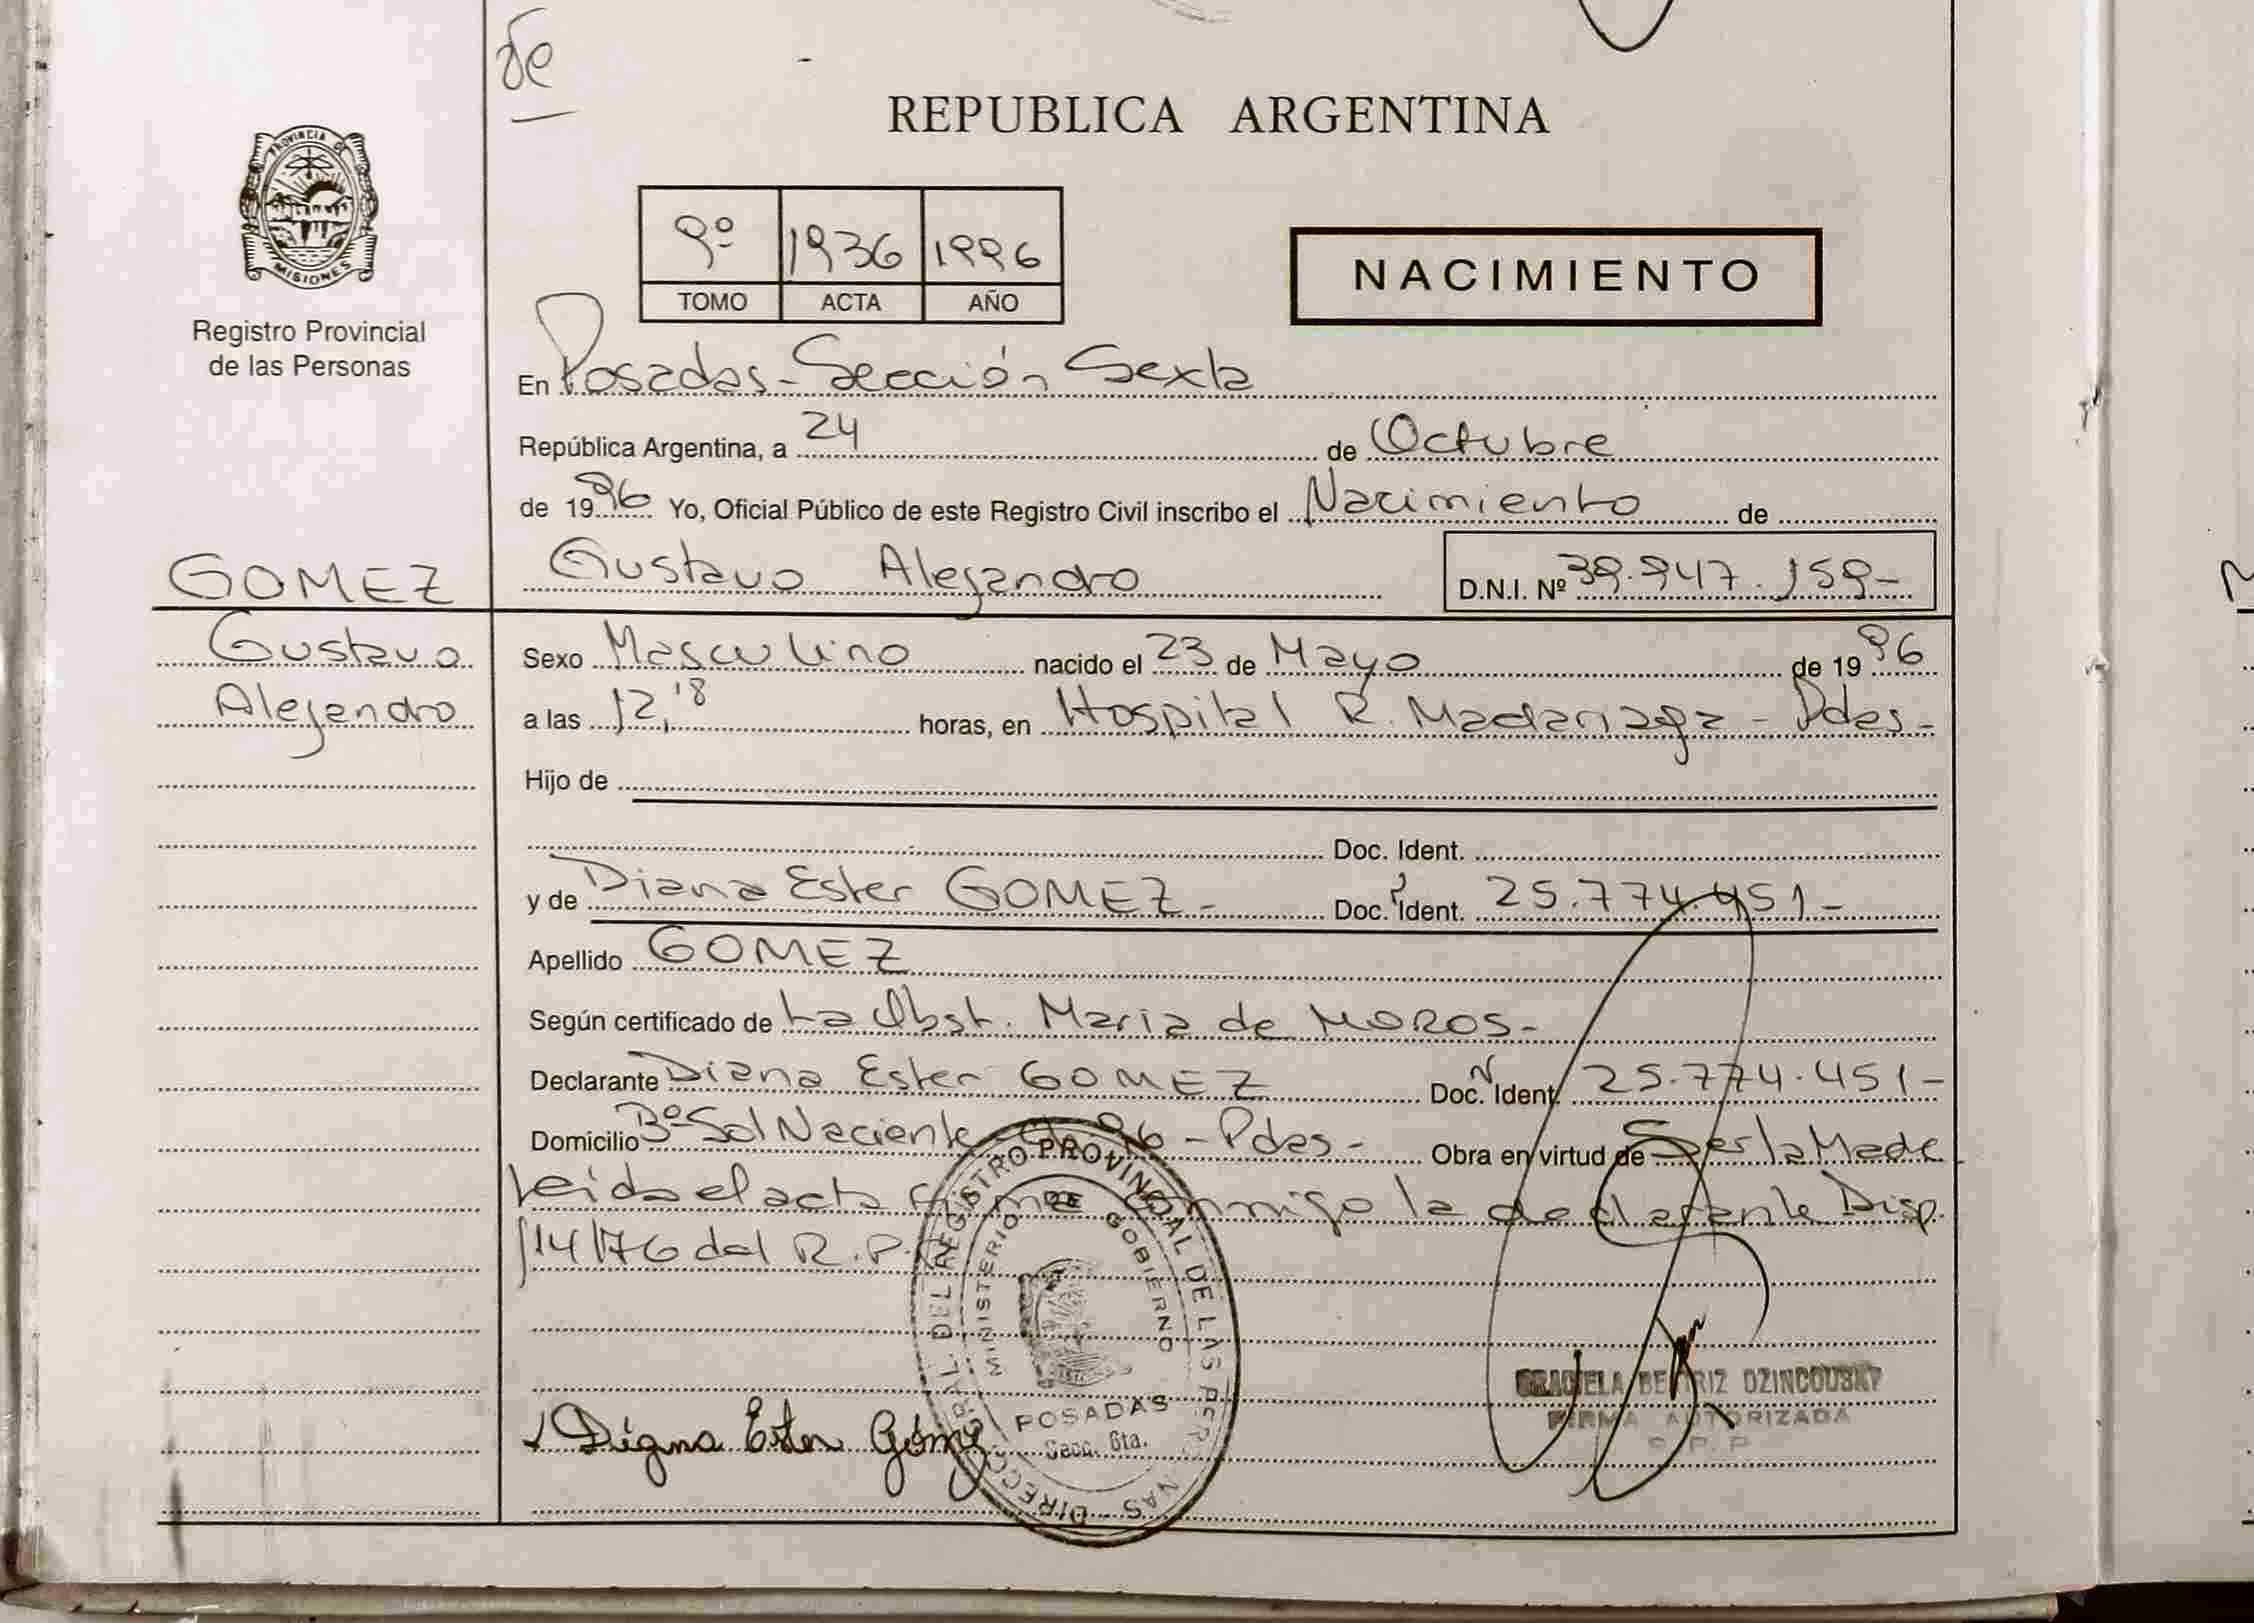 de
REPUBLICA ARGENTINA
PROVINCIA DE
MISIONES
Registro Provincial
de las Personas
9º 1936 1996
TOMO ACTA AÑO
NACIMIENTO
En Posadas - Sección Sexta
República Argentina, a 24 de Octubre
de 1996 Yo, Oficial Público de este Registro Civil inscribo el Nacimiento de
GOMEZ
Gustavo Alejandro D.N.I. Nº 39.947.159-
Gustavo
Alejandro
Sexo Masculino nacido el 23 de Mayo de 1996
a las 12,18 horas, en Hospital R. Madariaga - Pdas-
Hijo de
Doc. Ident.
y de Diana Ester GOMEZ - Doc. Ident. 25.774.451-
Apellido GOMEZ
Según certificado de La Obst. Maria de MOROS-
Declarante Diana Ester GOMEZ Doc. Ident. 25.774.451-
Domicilio Bº Sol Naciente 96 - Pdas - Obra en virtud de Ser la Madre
Leida el acta firma conmigo la declarante Disp.
114/76 del R.P.
DIRECC. GRAL. DEL REGISTRO PROVINCIAL DE LAS PERSONAS
MINISTERIO DE GOBIERNO
POSADAS
Secc. 6ta.
Digna Ester Gómez
GRACIELA BEATRIZ DZINCOUSKY
FIRMA AUTORIZADA
R.P.P